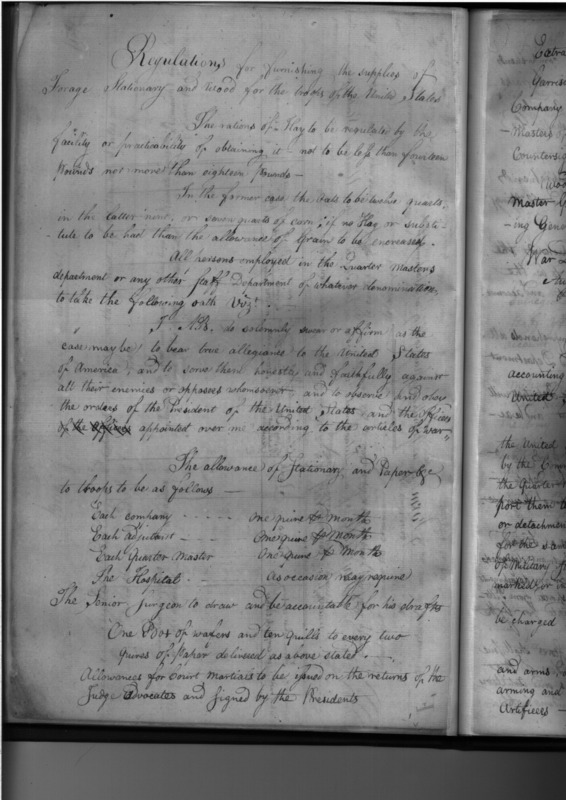 Regulations for furnishing the supplies of
Forage Stationary and Wood for the troops of the United States
The rations of Hay to be regulated by the
facility or practicability of obtaining it - not to be less than fourteen
Pounds nor more than eighteen Pounds -
In the former case the Oats to be twelve quarts,
in the latter nine, or seven quarts of corn; if no Hay or substi-
tute to be had than the allowance of Grain to be encreased.
All persons employed in the Quarter Masters
department or any other staff Department of whatever denomination
to take the following oath Vizt.
I. AB. do solemnly swear or affirm (as the
case may be) to bear true allegiance to the United States
of America, and to serve them honestly and faithfully against
all their enemies or opposers whomsoever and to observe and obey
the orders of the President of the United States and the officers
of the officers appointed over me according to the articles of war
The allowance of Stationary and Paper &c
to troops to be as follows -
Each company - - - - - One quire pr month
Each Adjutant - One quire pr month
Each Quarter Master One quire pr month
The Hospital - As occasion may require
The Senior Surgeon to draw and be accountable for his drafts
One Box of wafers and ten quills to every two
quires of Paper delivered as above stated -
Allowances for court martials to be issued on the returns of the
Judge Advocates and signed by the Presidents
Extra
Garriso
Company
- Masters of
Countersig
Master G
- ing Gene
War D
accounting
United
the United
by the
the Quarter
port them t
or detachmen
for the sam
of Military
marked or
be charged
and arms,
arming and
Artificers -